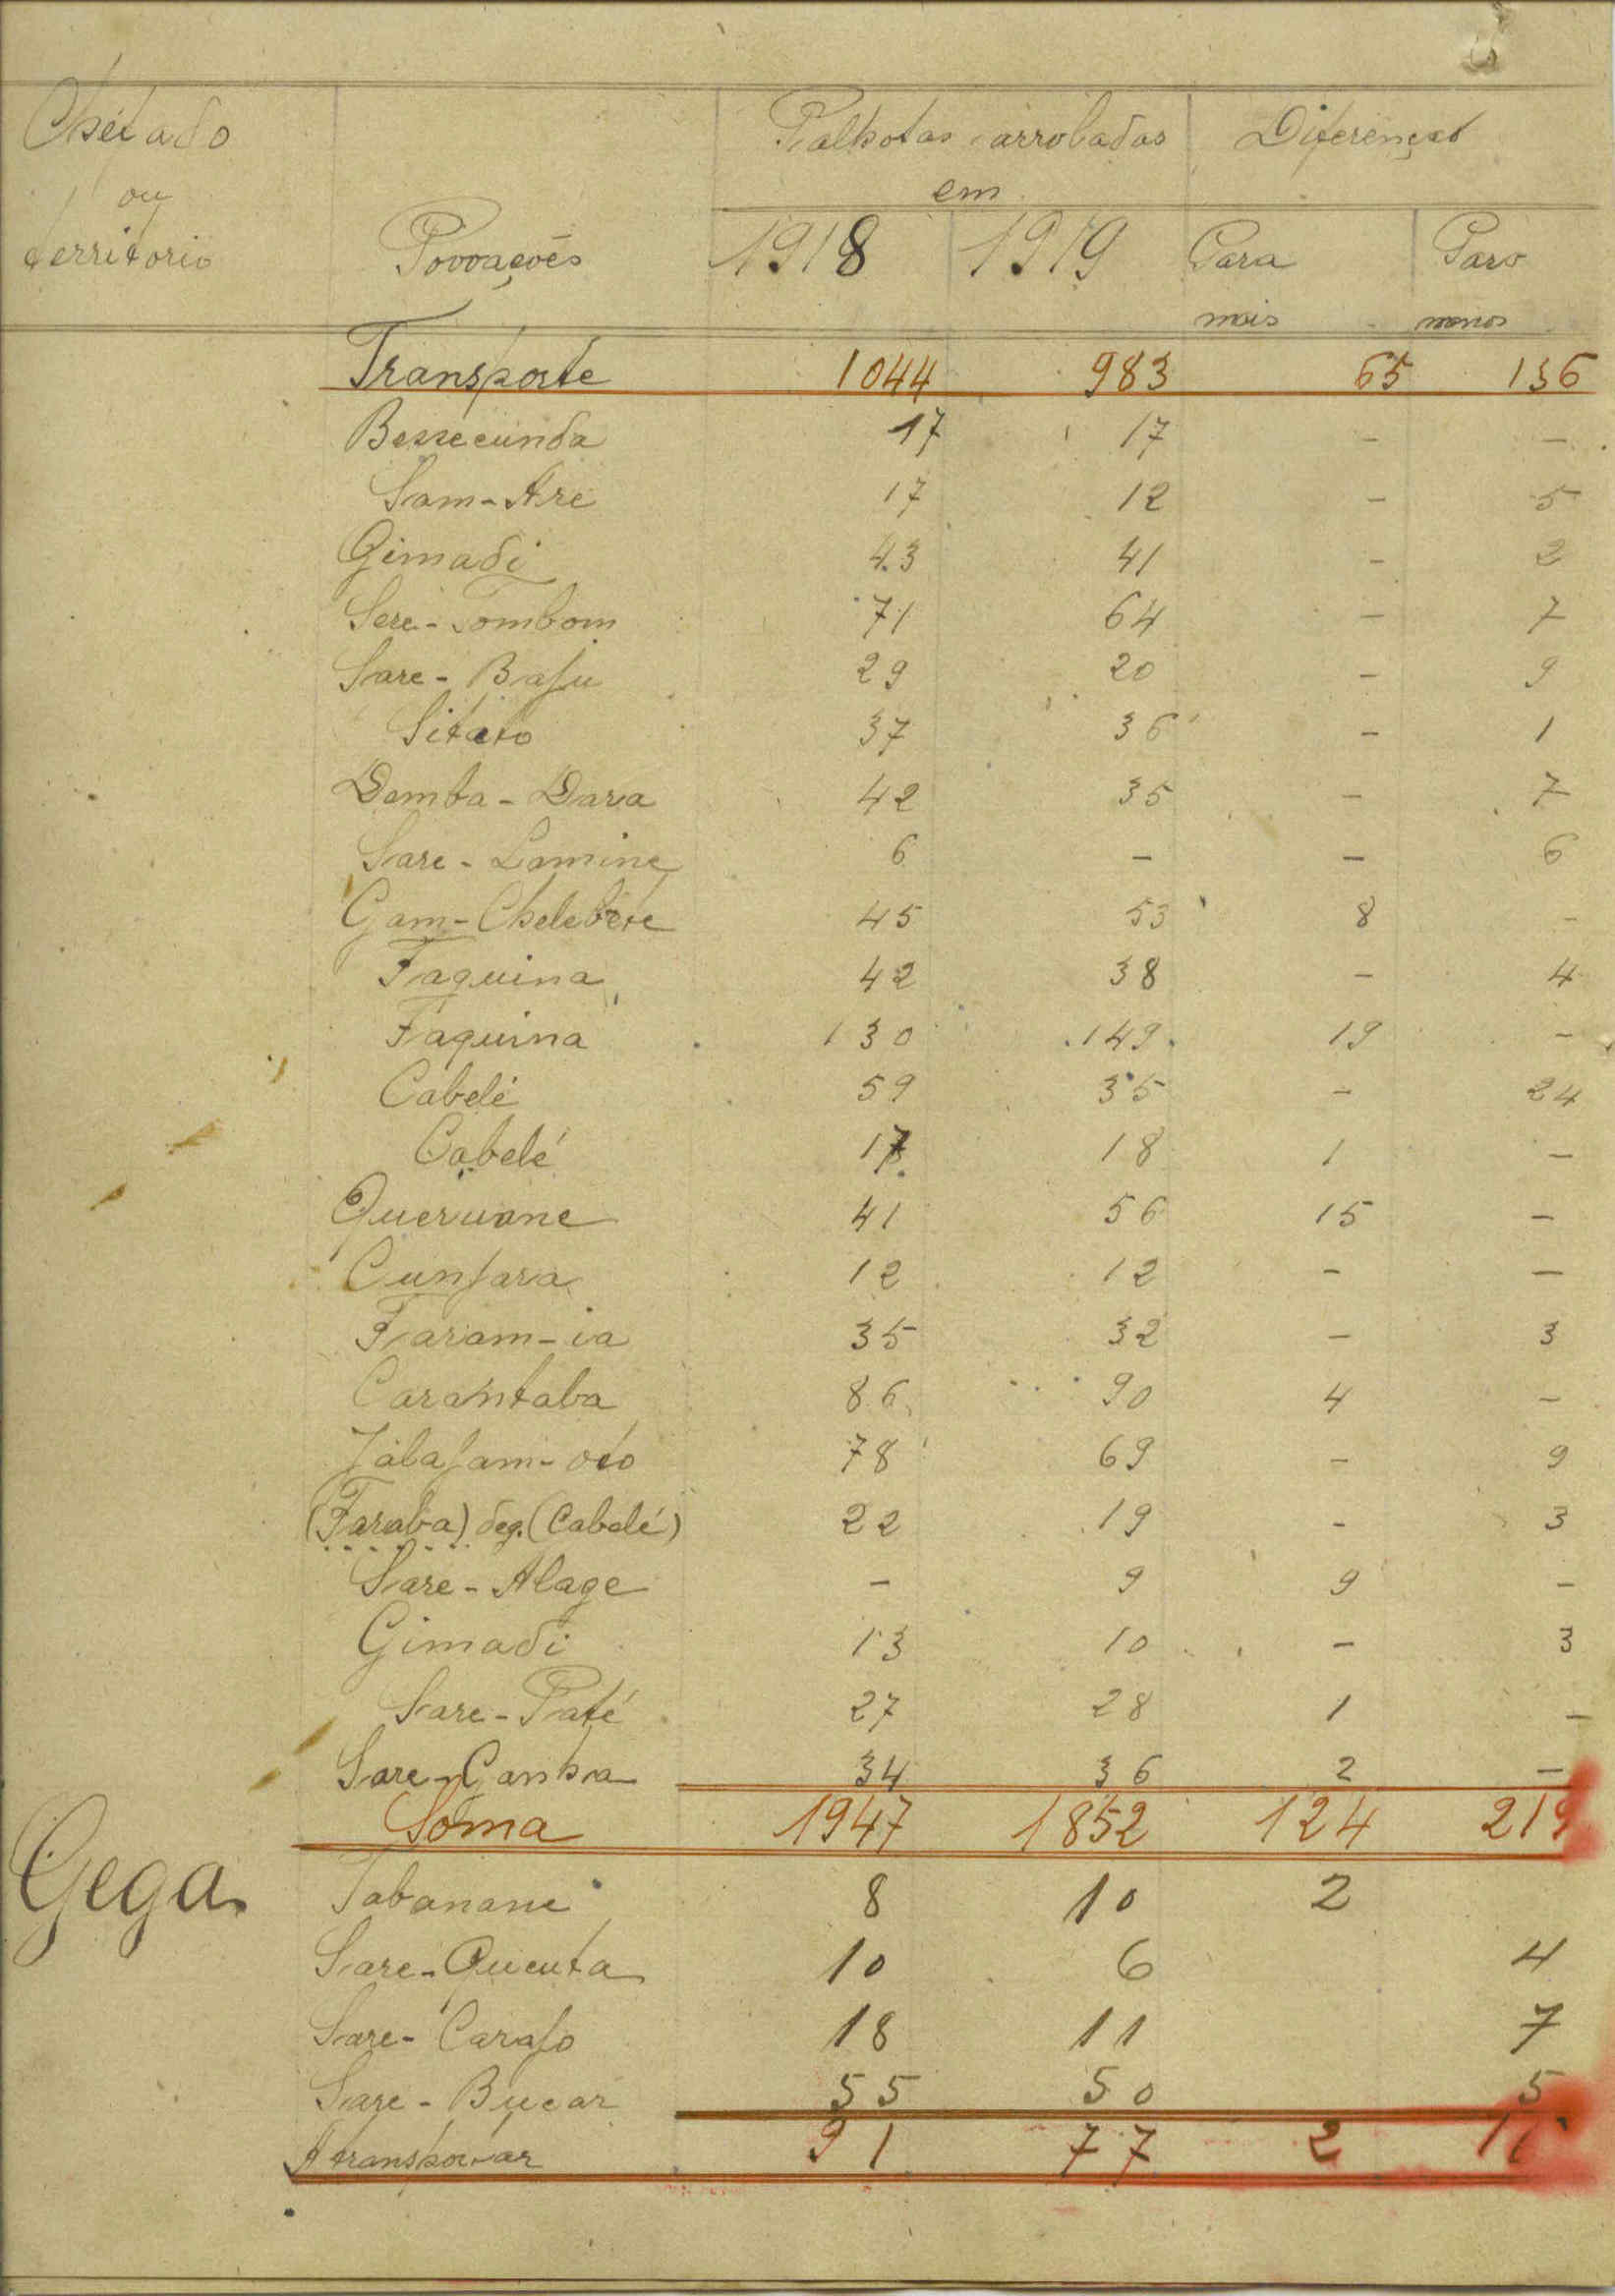 Palhotas arrobadas Diferenças
em
ou
territorio Povoações 1918 1919 Para Para
mais menos
Transporte 1044 983 65 136
Bessecunda 17 17 - -
Sam-Are 17 12 - 5
Gimadi 43 41 - 2
Sere-Tombom 71 64 - 7
Sare-Bafu 29 20 - 9
Sitato 37 36 - 1
Demba-Dara 42 35 - 7
Sare-Lamine 6 - - 6
Gam-Chelebete 45 53 8 -
Faquina 42 38 - 4
Faquina 130 149 19 -
Cabelé 59 35 - 24
Cabelé 17 18 1 -
Queruane 41 56 15 -
Cunfara 12 12 - -
Faram-ia 35 32 - 3
Carantaba 86 90 4 -
78 69 - 9
(Faraba) deg. (Cabelé) 22 19 - 3
Sare-Alage - 9 9 -
Gimadi 13 10 - 3
Sare-Paté 27 28 1 -
Sare-Canha 34 36 2 -
Soma 1947 1852 124 219
Gega Tabanane 8 10 2
Sare-Queuta 10 6 4
Sare-Carafo 18 11 7
Sare-Bucar 55 50 5
A transportar 91 77 2 16